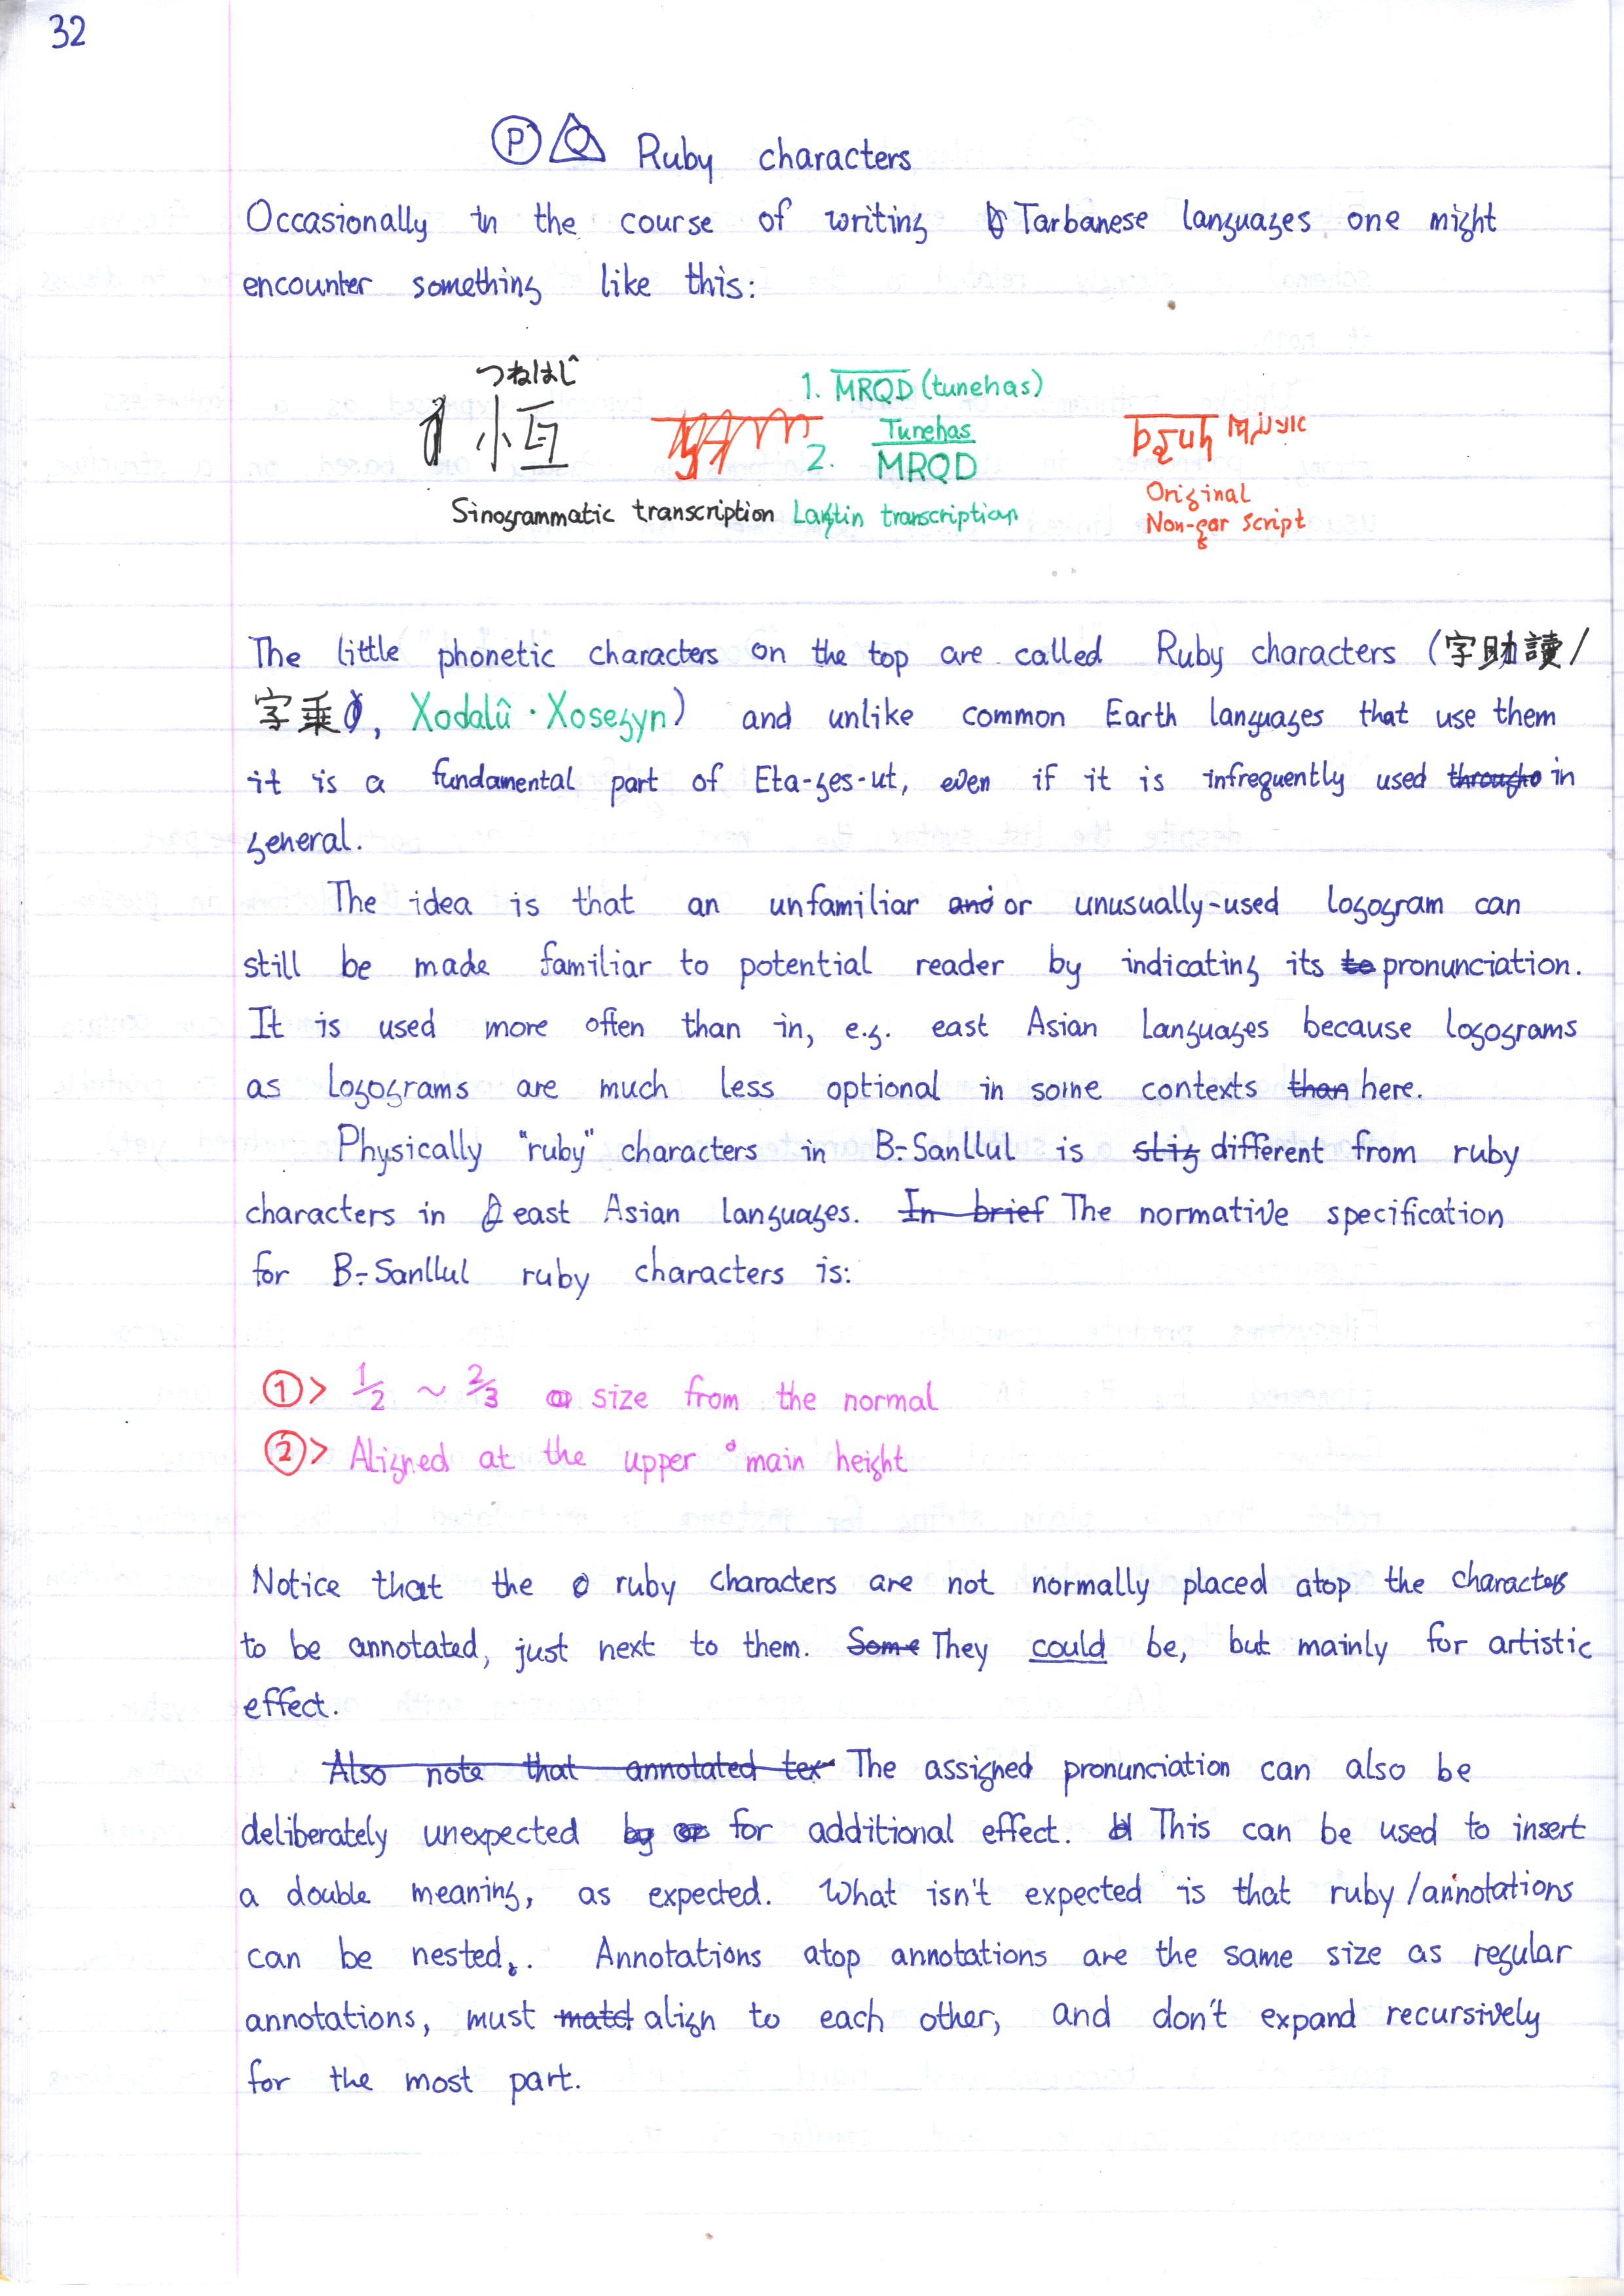 32
Ⓟ Ruby characters
Occasionally in the course of writing Tarbanese languages one might
encounter something like this:
つねはじ
小亘
1. MRQD (tunehas)
2. Tunehas
MRQD
Sinogrammatic transcription
Lartin transcription
Original
Non-gar script
The little phonetic characters on the top are called Ruby characters (字助讀/
字乗, Xodalû · Xosegyn) and unlike common Earth languages that use them
it is a fundamental part of Eta-ges-ut, even if it is infrequently used througho in
general.
The idea is that an unfamiliar and or unusually-used logogram can
still be made familiar to potential reader by indicating its to pronunciation.
It is used more often than in, e.g. east Asian Languages because logograms
as logograms are much less optional in some contexts than here.
Physically "ruby" characters in B-Sanllul is slig different from ruby
characters in east Asian languages. In brief The normative specification
for B-Sanllul ruby characters is:
①> 1/2 ~ 2/3 size from the normal
②> Aligned at the upper main height
Notice that the ruby characters are not normally placed atop the characters
to be annotated, just next to them. Some They could be, but mainly for artistic
effect.
Also note that annotated tex The assigned pronunciation can also be
deliberately unexpected by or for additional effect. This can be used to insert
a double meaning, as expected. What isn't expected is that ruby/annotations
can be nested. Annotations atop annotations are the same size as regular
annotations, must matd align to each other, and don't expand recursively
for the most part.